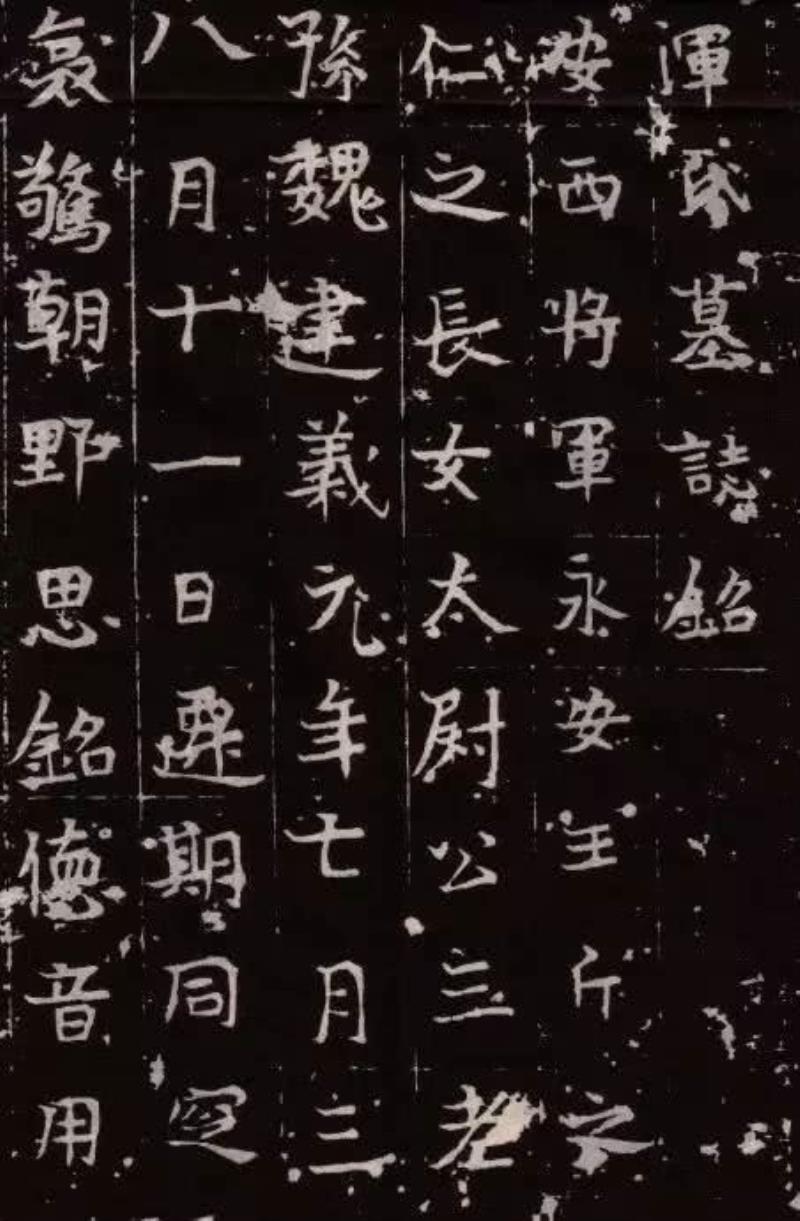 渾氏墓誌銘
安西将軍永安王斤之
仁之長女太尉公三老
孫魏建義元年七月三
八月十一日遷期同窆
哀驚朝野思銘德音用